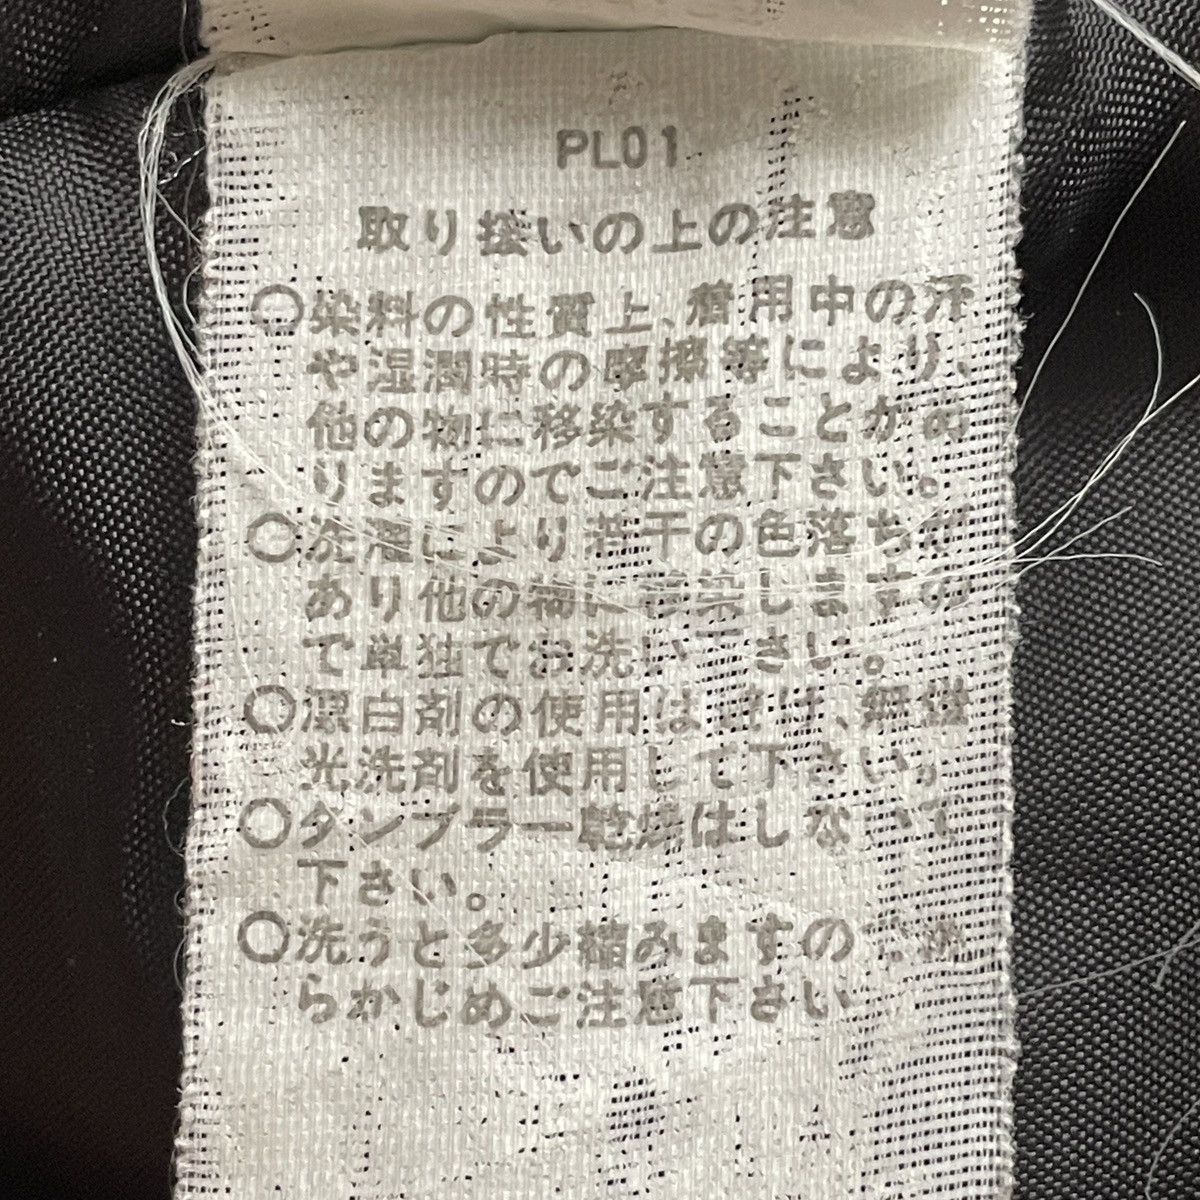 PL01
取り扱いの上の注意
○染料の性質上、着用中の汗
や湿潤時の摩擦等により、
他の物に移染することがあ
りますのでご注意下さい。
○洗濯により若干の色落ちが
あり他の物に移染しますの
で単独でお洗い下さい。
○漂白剤の使用はさけ、無蛍
光洗剤を使用して下さい。
○タンブラー乾燥はしないで
下さい。
○洗うと多少縮みますの
らかじめご注意下さい